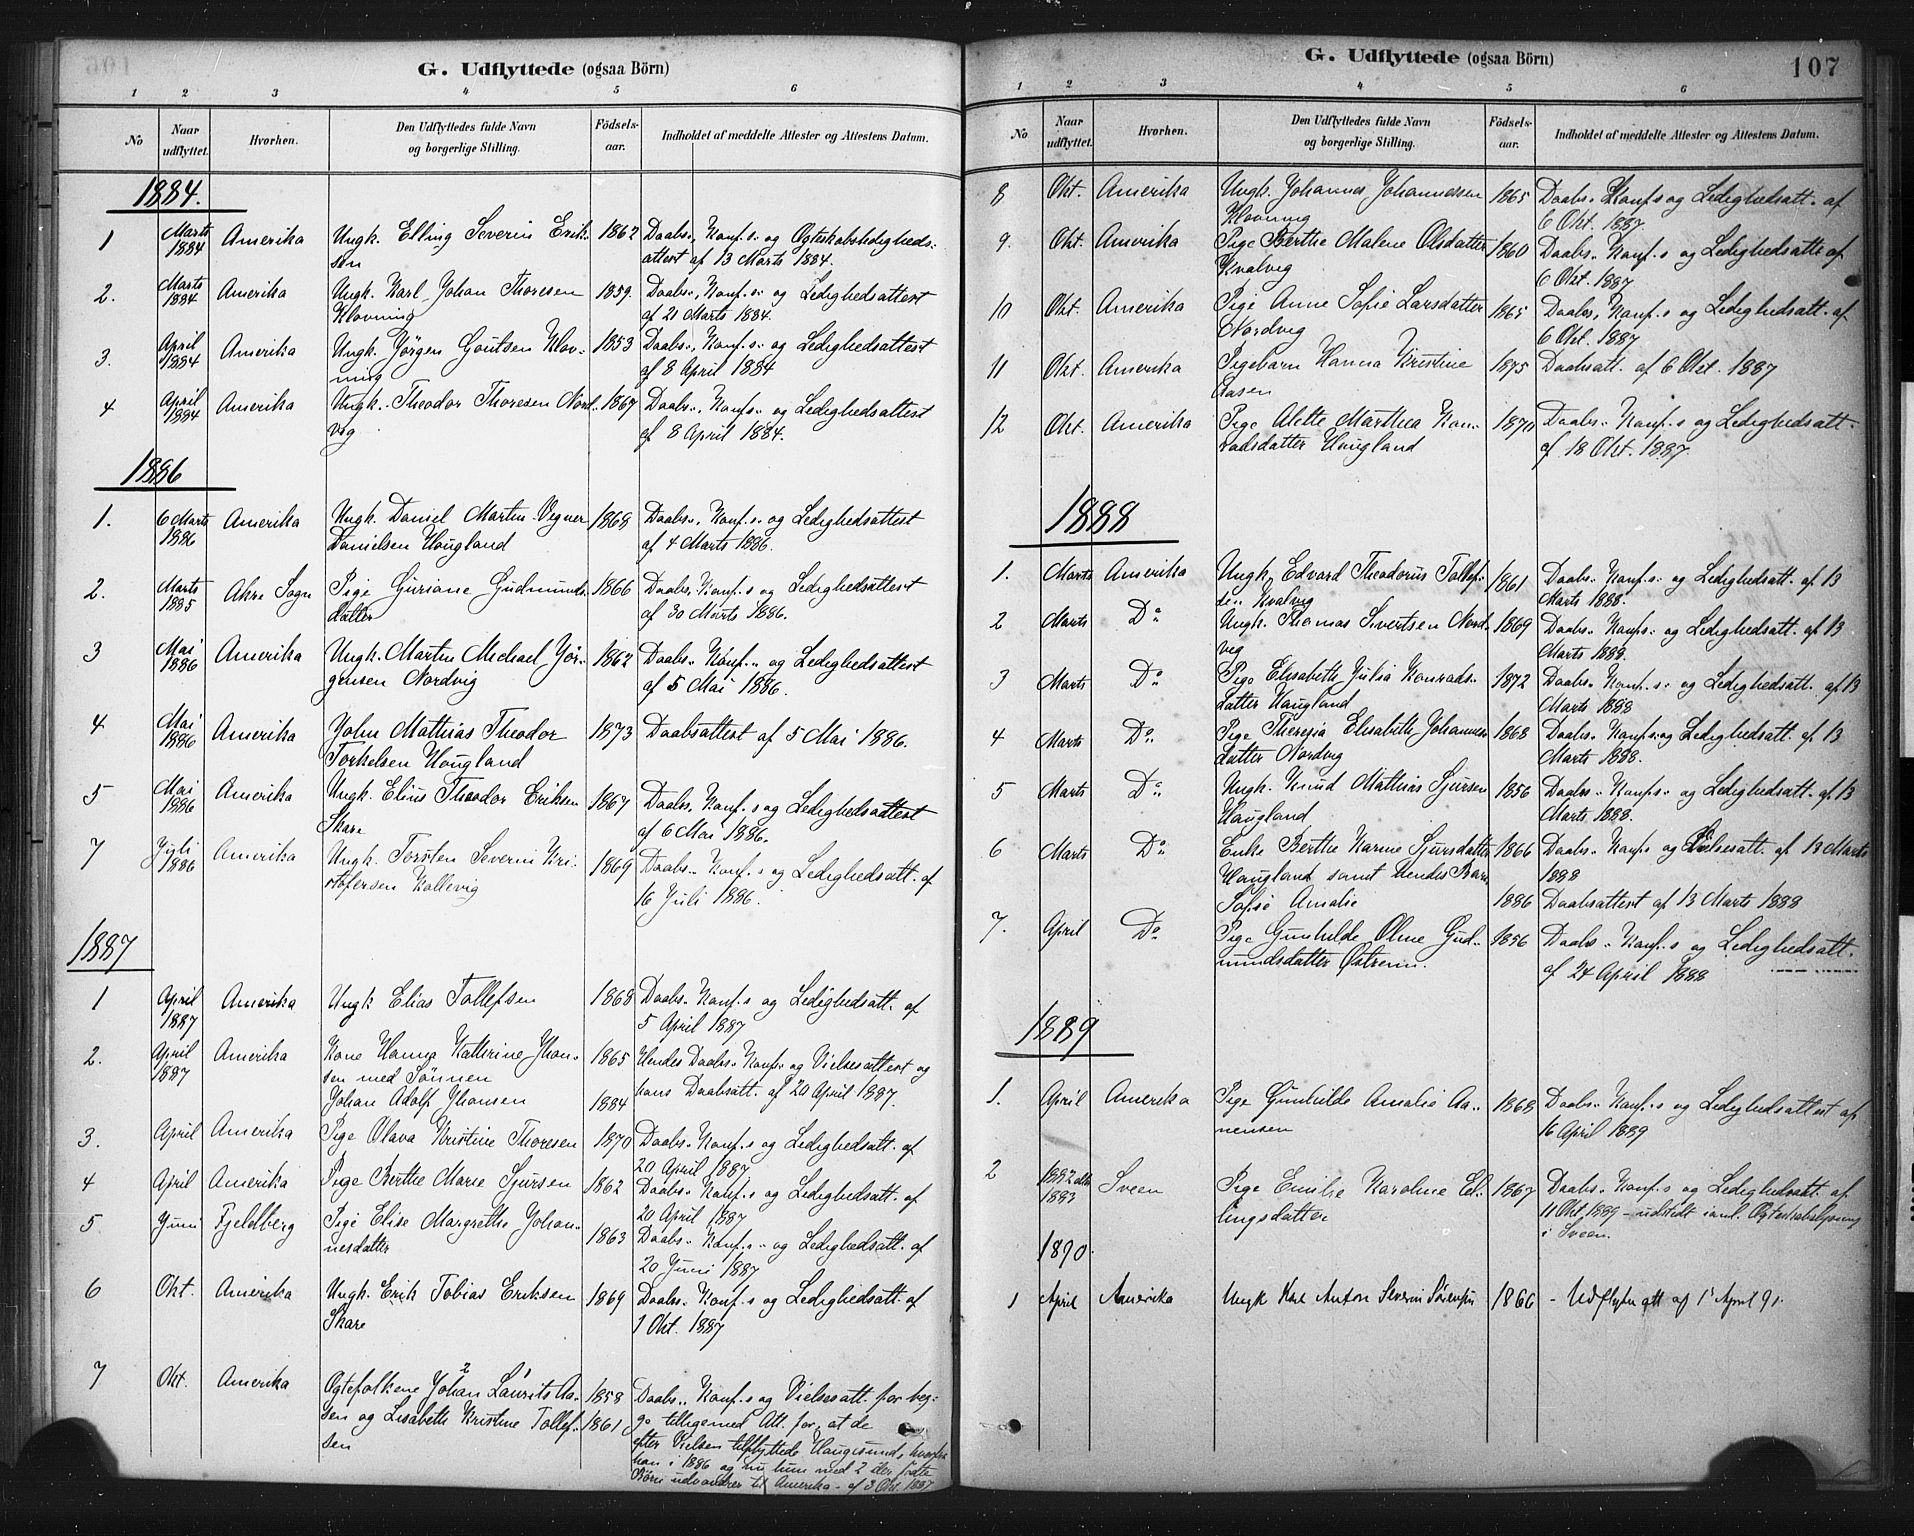 G. Udflyttede (ogsaa Börn)
1 2 3 4 5 6
No Naar udflyttet. Hvorhen. Den Udflyttedes fulde Navn og borgerlige Stilling. Födsels-aar. Indholdet af meddelte Attester og Attestens Datum.
1884.
1 Marts 1884 Amerika Ungk. Elling Severin Erik- 1862 Daabs-, Konf.s- og Ogteskabsledigheds-
sen attest af 13 Marts 1884.
2. Marts 1884 Amerika Ungk. Karl Johan Thoresen 1859. Daabs-, Konf.s- og Ledighedsattest
Klovning af 21 Marts 1884.
3. April 1884 Amerika Ungk. Jörgen Goutsen Klov- 1853 Daabs-, Konf.s- og Ledighedsattest
ning af 8 April 1884
4 April 1884 Amerika Ungk. Theodor Thoresen Nord- 1867 Daabs-, Konf.s- og Ledighedsattest
vig af 8 April 1884.
1886
1. 6 Marts 1886 Amerika Ungk. Daniel Martin Vegner 1868 Daabs-, Konf.s- og Ledighedsattest
Danielsen Hougland af 4 Marts 1886.
2. Marts 1885 Akre Sogn Pige Guriane Gudmunds- 1866 Daabs-, Konf.s og Ledighedsattest
datter af 30 Marts 1886.
3 Mai 1886 Amerika Ungk. Martin Michael Jör- 1862 Daabs-, Konf.- og Ledighedsattest
gensen Nordvig af 5 Mai 1886.
4 Mai 1886 Amerika John Mathias Theodor 1873 Daabsattest af 5 Mai 1886.
Torkelsen Hougland
5 Mai 1886 Amerika Ungk. Elius Theodor Eriksen 1867 Daabs-, Konf.s og Ledighedsattest
Skare af 6 Mai 1886.
7 Juli 1886 Amerika Ungk. Torsten Severin Kri- 1869 Daabs- Konf.s og Ledighedsatt. af
stofersen Kollevig 16 Juli 1886.
1887
1 April 1887 Amerika Ungk Elias Tollefsen 1868 Daabs- Konf.s og Ledighedsatt. af
5 April 1887
2. April 1887 Amerika Kone Hanna Kathrine Jhan- 1865 Hendes Daabs- Konf.- og Vielsesattest og
sen med Sönnen
Johan Adolf Jhansen 1884 hans Daabsatt. af 20 April 1887.
3. April Amerika Pige Olava Kristine Thoresen 1870 Daabs- Konf.s og Ledighedsatt. af
20 April 1887
4 April Amerika Pige Berthe Marie Sjursen 1862 Daabs- Konf.s og Ledighedsatt. af
20 April 1887
5 Juni Fjeldberg Pige Elise Margrethe Johan- 1863 Daabs- Konf.s- og Ledighedsatt. af
nesdatter 20 Juni 1887
6 Okt. Amerika Ungk. Erik Tobias Eriksen 1869 Daabs- Konf.s og Ledighedsatt. af
Skare 1 Okt. 1887
7 Okt. Amerika Ogtefolkene Johan Laurits Aa- 1858 Daabs- Konf.s og Vielsesatt. for beg-
sen og Lisabeth Kristine Tollef- 1861 ge tilligemed Att. for, at de
sen efter Vielsen tilflyttede Haugesund, hvorfra
han i 1886 og nu hun med 2 der födte
Börn udvandrer til Amerika - af 3 Okt. 1887
G. Udflyttede (ogsaa Börn) 107
1 2 3 4 5 6
No Naar udflyttet. Hvorhen. Den Udflyttedes fulde Navn og borgerlige Stilling. Födsels-aar. Indholdet af meddelte Attester og Attestens Datum.
8 Okt. Amerika Ungk. Johannes Johannessen 1865 Daabs- Konf.s og Ledighedsatt. af
Klovning 6 Okt. 1887
9. Okt. Amerika Pige Berthe Malene Olsdatter 1860 Daabs- Konf.s og Ledighedsatt. af
Kvalvig 6 Okt. 1887
10 Okt. Amerika Pige Anne Sofie Larsdatter 1865 Daabs, Konf.s og Ledighedsatt. af
Nordvig 6 Okt. 1887
11 Okt. Amerika Pigebarn Hanna Kristine 1875 Daabsatt. af 6 Okt. 1887
Aasen
12 Okt. Amerika Pige Alette Marthea Kon- 1870 Daabs- Konf.s og Ledighedsatt.
radsdatter Hougland af 18 Okt. 1887.
1888
1. Marts Amerika Ungk. Edvard Theodorus Tollef- 1861 Daabs- Konf.s- og Ledighedsatt. af 13
sen Kvalvig Marts 1888.
2 Marts Do Ungk. Thomas Sivertsen Nord- 1869 Daabs- Konfs- og Ledighedsatt. af 13
veg Marts 1888.
3 Marts Do Pige Elisabeth Julia Konrads- 1872 Daabs- Konf.s- og Ledighedsatt. af 13
datter Haugland Marts 1888
4 Marts Do Pige Theresia Elisabeth Johannes- 1868 Daabs- Konf.s- og Ledighedsatt. af 13
datter Nordvig Marts 1888.
5 Marts Do Ungk. Knud Mathias Sjursen 1856 Daabs- Konfs- og Ledighedsatt. af 13
Haugland Marts 1888.
6 Marts Do Enke Berthe Karine Sjursdatter 1866 Daabs- Konfs og Vielsesatt. af 13 Marts
Haugland samt hendes Barn 1888
Sofie Amalie 1886 Daabsattest af 13 Marts 1888
7. April Do Pige Gunhilde Oline Gud- 1856 Daabs- Konf.s og Ledighedsatt.
mundsdatter Östrem. af 24 April 1888
1889
1. April Amerika Pige Gunhilde Amalie Aa- 1868 Daabs- Konf.s og Ledighedsattest af
nensen 16 April 1889
2 1882 eller 1883 Sveen Pige Emilie Karoline El- 1867 Daabs- Konf.s og Ledighedsatt. af
lingsdatter 11 Okt 1889 - udstedt i anl. Ogteskabslysning
i Sveen.
1890.
1 April Amerika Ungk Karl Anton Severin Sörensen 1866 - Udflytn. att af 1' April 91.